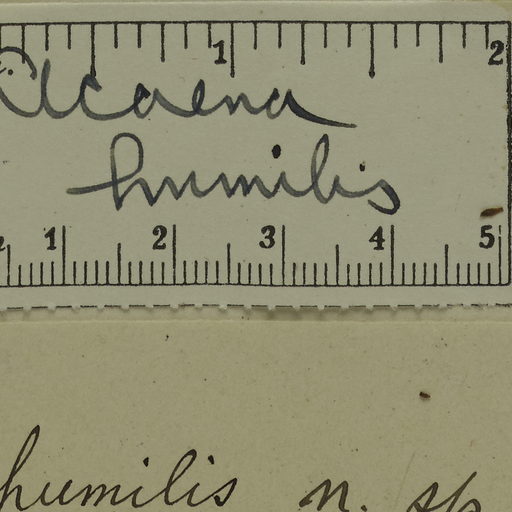 1 2
Acaena
humilis
1 2 3 4 5
humilis n. sp